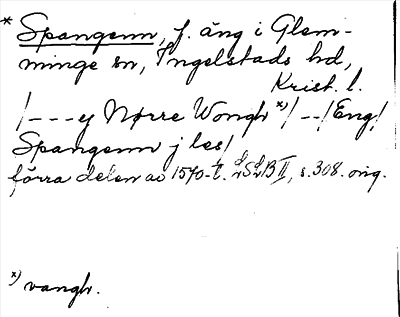 * Spangenn, f. äng i Glem-
minge sn, Ingelstads hd,
Krist. l.
/---ÿ Nørre Wongh *)/--/Eng/
Spangenn j les/
förra delen av 1570-t. LSLB II, s. 308. orig.
*) vangh.